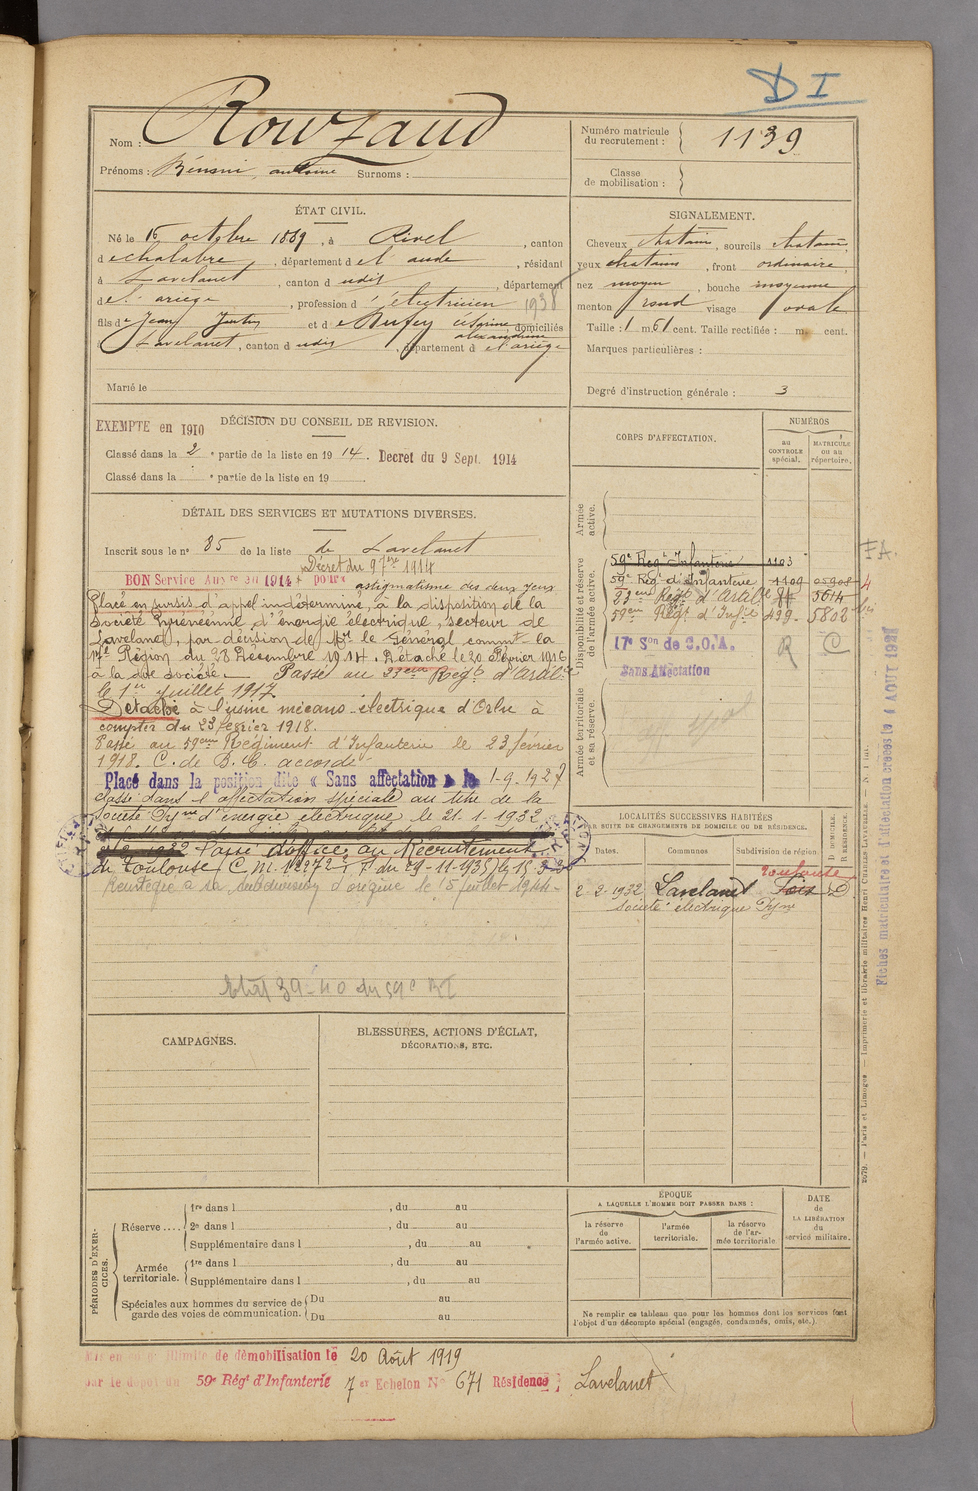 D I
Nom : Rouzaud
Prénoms : Bénoni, antoine Surnoms :
Numéro matricule du recrutement : 1139
Classe de mobilisation :
ÉTAT CIVIL.
Né le 15 octobre 1889, à Rivel, canton
de chalabre, département de l'aude, résidant
à Lavelanet, canton d udit, département
de l'ariège, profession d'électricien 1938
fils de Jean et de Césarine, domiciliés
alexandrine
à Lavelanet, canton d udit, département de l'ariège
Marié le
SIGNALEMENT.
Cheveux chatain, sourcils chatain,
yeux chatains, front ordinaire,
nez moyen, bouche moyenne
menton rond visage ovale
Taille : 1 m 61 cent. Taille rectifiée : m. cent.
Marques particulières :
Degré d'instruction générale : 3
DÉCISION DU CONSEIL DE REVISION.
EXEMPTE en 1910
Classé dans la 2e partie de la liste en 1914. Decret du 9 Sept. 1914
Classé dans la e partie de la liste en 19
DÉTAIL DES SERVICES ET MUTATIONS DIVERSES.
Inscrit sous le no 85 de la liste de Lavelanet
Décret du 9 7bre 1914
BON Service Auxre en 1914 pour astigmatisme des deux yeux
Placé en sursis d'appel indéterminé, à la disposition de la
Société Pyrénéenne d'énergie électrique, secteur de
Lavelanet, par décision de Mr le Général commt la
17e Région du 28 Décembre 1914. Détaché le 20 Février 1916
à la dite Société. Passé au 23eme Régt d'Artille
le 1er Juillet 1917.
Détaché à l'usine mécano-électrique d'Orlu à
compter du 23 février 1918.
Passé au 59eme Régiment d'Infanterie le 23 février
1918. C. de B. C. accordé
Placé dans la position dite « Sans affectation » le 1-9-1927
Classé dans l'affectation spéciale au titre de la
Société Pyrne d'énergie électrique le 21-1-1932
Passé d'office au Recrutement
de Toulouse
Réintégré à sa subdivision d'origine le 15 juillet 1944
Etat 39-40 du 59e RI
CORPS D'AFFECTATION.
NUMÉROS
au CONTROLE spécial.
MATRICULE ou au répertoire.
Armée active.
Disponibilité et réserve de l'armée active.
59e Regt Infanterie 1103
59e Régt d'Infanterie 1109 05908
23eme Régt d'Artille 5614
59eme Régt d'Infie 499 5802 bis
17e Son de C.O.A. R C
Sans Affectation
Armée territoriale et sa réserve.
FA.
Fiches matriculaire et d'affectation créées le 1 AOUT 1931
LOCALITÉS SUCCESSIVES HABITÉES
PAR SUITE DE CHANGEMENTS DE DOMICILE OU DE RÉSIDENCE.
Dates. Communes Subdivision de région. D DOMICILE. R RÉSIDENCE.
Toulouse
2-2-1932 Lavelanet Foix D
Société électrique Pyrne
CAMPAGNES.
BLESSURES, ACTIONS D'ÉCLAT,
DÉCORATIONS, ETC.
PÉRIODES D'EXERCICES.
Réserve .... 1re dans l , du au
2e dans l , du au
Supplémentaire dans l , du au
Armée territoriale. 1re dans l , du au
Supplémentaire dans l , du au
Spéciales aux hommes du service de garde des voies de communication. Du au
Du au
ÉPOQUE
A LAQUELLE L'HOMME DOIT PASSER DANS :
la réserve de l'armée active.
l'armée territoriale.
la réserve de l'armée territoriale
DATE de LA LIBÉRATION du service militaire.
Ne remplir ce tableau que pour les hommes dont les services font
l'objet d'un décompte spécial (engagés, condamnés, omis, etc.).
2979. — Paris et Limoges — Imprimerie et librairie militaires Henri CHARLES-LAVAUZELLE.
Mis en congé illimité de démobilisation le 20 Août 1919
par le dépôt du 59e Régt d'Infanterie 7 er Echelon No 671 Résidence : Lavelanet